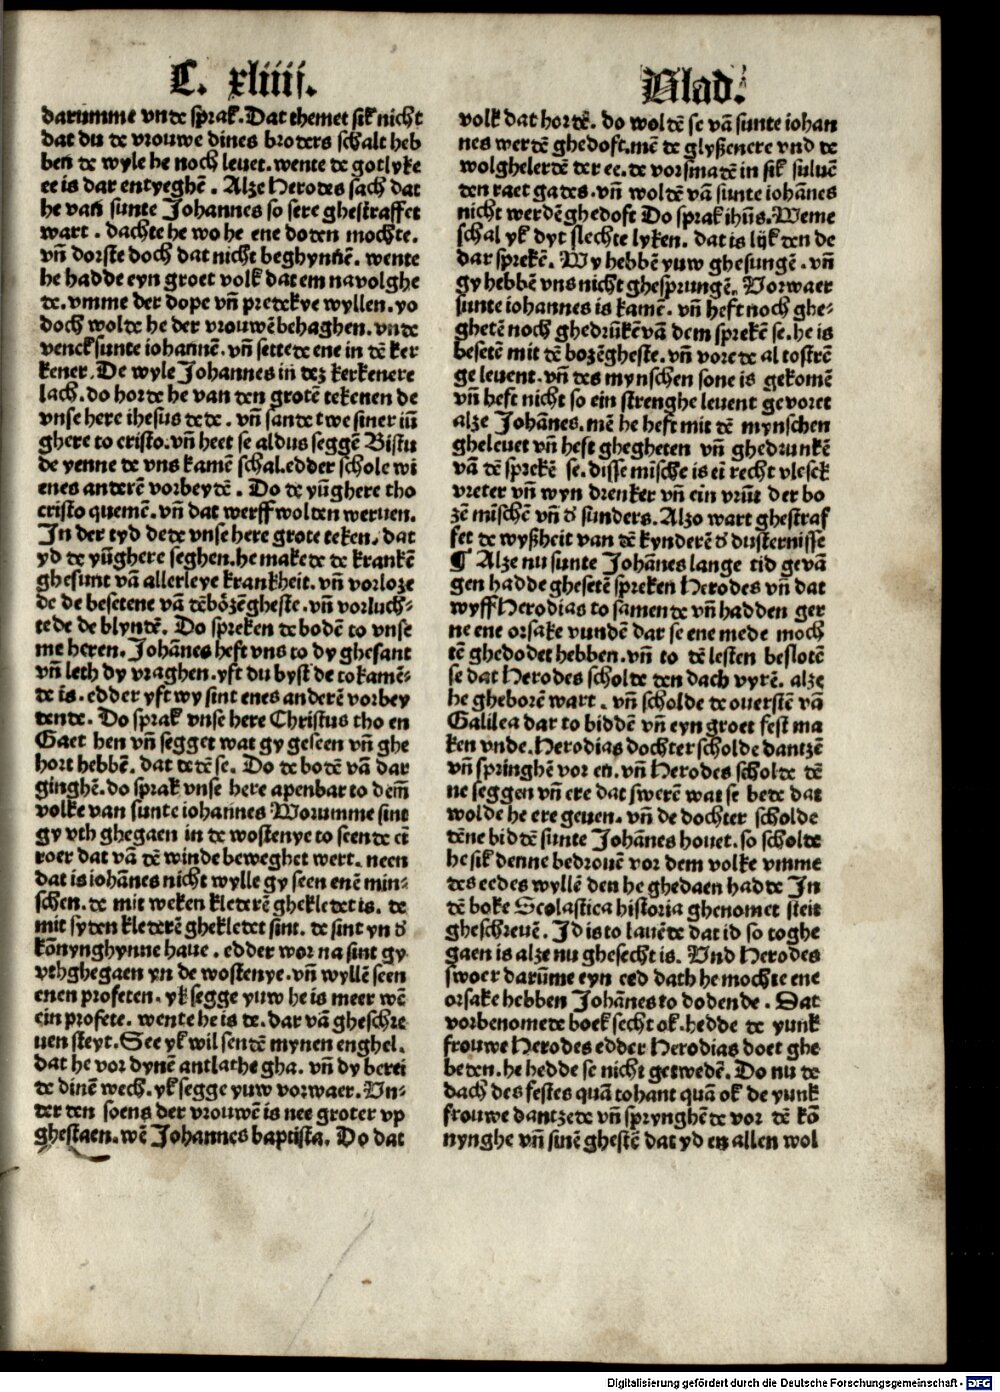 C. xliiij.
darumme vnde sprak. Dat themet sik nicht
dat du de vrouwe dines broders schalt heb
ben de wyle he noch leuet. wente de gotlyke
ee is dar entyeghē. Alze Herodes sach dat
he van sunte Johannes so sere ghestraffet
wart. dachte he wo he ene doden mochte.
vn̄ dorste doch dat nicht beghyn̄ē. wente
he hadde eyn groet volk dat em navolghe
de. vmme der dope vn̄ predekye wyllen. yo
doch wolde he der vrouwē behaghen. vnde
venck sunte iohannē. vn̄ settede ene in dē ker
kener. De wyle Johannes in dez kerkenere
lach. do horde he van den grotē tekenen de
vnse here ihesus dede. vn̄ sande twe siner iū
ghere to cristo. vn̄ heet se aldus seggē Bistu
de yenne de vns kamē schal. edder schole wi
enes anderē vorbeydē. Do de yūghere tho
cristo quemē. vn̄ dat werff wolden weruen.
In der tyd dede vnse here grote teken. dat
yd de yūghere seghen. he makede de krankē
ghesunt vā allerleye krankheit. vn̄ vorloze
de de besetene vā dē bözēgheste. vn̄ vorluch-
tede de blyndē. Do spreken de bodē to vnse
me heren. Johānes heft vns to dy ghesant
vn̄ leth dy vraghen. yft du byst de to kamē-
de is. edder yft wy sint enes anderē vorbey
dende. Do sprak vnse here Christus tho en
Gaet hen vn̄ segget wat gy geseen vn̄ ghe
hort hebbē. dat dedē se. Do de bodē vā dar
ginghē. do sprak vnse here apenbar to dem̄
volke van sunte iohannes Worumme sint
gy vth ghegaen in de wostenye to seende eī
roer dat vā dē winde beweghet wert. neen
dat is iohānes nicht wylle gy seen enē min-
schen. de mit weken klederē ghekledet is. de
mit syden klederē ghekledet sint. de sint yn d'
kōnynghynne haue. edder wor na sint gy
vthghegaen yn de wostenye. vn̄ wyllē seen
enen profeten. yk segge yuw he is meer wē
ein profete. wente he is de. dar vā gheschre
uen steyt. See yk wil sendē mynen enghel.
dat he vor dynē antlathe gha. vn̄ dy berei
de dinē wech. yk segge yuw vorwaer. Vn-
der den soens der vrouwē is nee groter vp
ghestaen. wē Johannes baptista. Do dat
Blad.
volk dat hordē. do woldē se vā sunte iohan
nes werdē ghedoft. mē de glyßenere vnd de
wolghelerdē der ee. de vorsmadē in sik suluē
den raet gades. vn̄ woldē vā sunte iohānes
nicht werdē ghedoft Do sprak ihūs. Weme
schal yk dyt slechte lyken. dat is lijk den de
dar sprekē. Wy hebbē yuw ghesungē. vn̄
gy hebbē vns nicht ghesprungē. Vorwaer
sunte iohannes is kamē. vn̄ heft noch ghe-
ghetē noch ghedrūkē vā dem sprekē se. he is
besetē mit dē bozēgheste. vn̄ vorede al to strē
ge leuent. vn̄ des mynschen sone is gekomē
vn̄ heft nicht so ein strenghe leuent gevoret
alze Johānes. mē he heft mit dē mynschen
gheleuet vn̄ heft ghegheten vn̄ ghedrunkē
vā dē sprekē se. disse mīsche is eī recht vlesck
vreter vn̄ wyn drenker vn̄ ein vrūt der bo
zē mīschē vn̄ d' sunders. Alzo wart ghestraf
fet de wyßheit van dē kynderē d' dusternisse
¶ Alze nu sunte Johānes lange tid gevā
gen hadde ghesetē spreken Herodes vn̄ dat
wyff Herodias to samende vn̄ hadden ger
ne ene orsake vundē dar se ene mede moch
tē ghedodet hebben. vn̄ to dē lesten beslotē
se dat Herodes scholde den dach vyrē. alze
he gheborē wart. vn̄ scholde de ouersten vā
Galilea dar to biddē vn̄ eyn groet fest ma
ken vnde. Herodias dochter scholde dantzē
vn̄ springhē vor en. vn̄ Herodes scholde dē
ne seggen vn̄ ere dat swerē wat se bede dat
wolde he ere geuen. vn̄ de dochter scholde
dēne biddē sunte Johānes houet. so scholde
he sik denne bedrouē vor dem volke vmme
des eedes wyllē den he ghedaen hadde In
dē boke Scolastica historia ghenomet steit
gheschreuē. Id is to lauēde dat id so toghe
gaen is alze nu ghesecht is. Vnd Herodes
swoer darūme eyn eed dath he mochte ene
orsake hebben Johānes to dodende. Dat
vorbenomede boek secht ok. hedde de yunk
frouwe Herodes edder Herodias doet ghe
beden. he hedde se nicht getwedē. Do nu de
dach des festes quā tohant quā ok de yunk
frouwe dantzede vn̄ sprynghēde vor dē kō
nynghe vn̄ sinē ghestē dat yd en allen wol
Digitalisierung gefördert durch die Deutsche Forschungsgemeinschaft - DFG